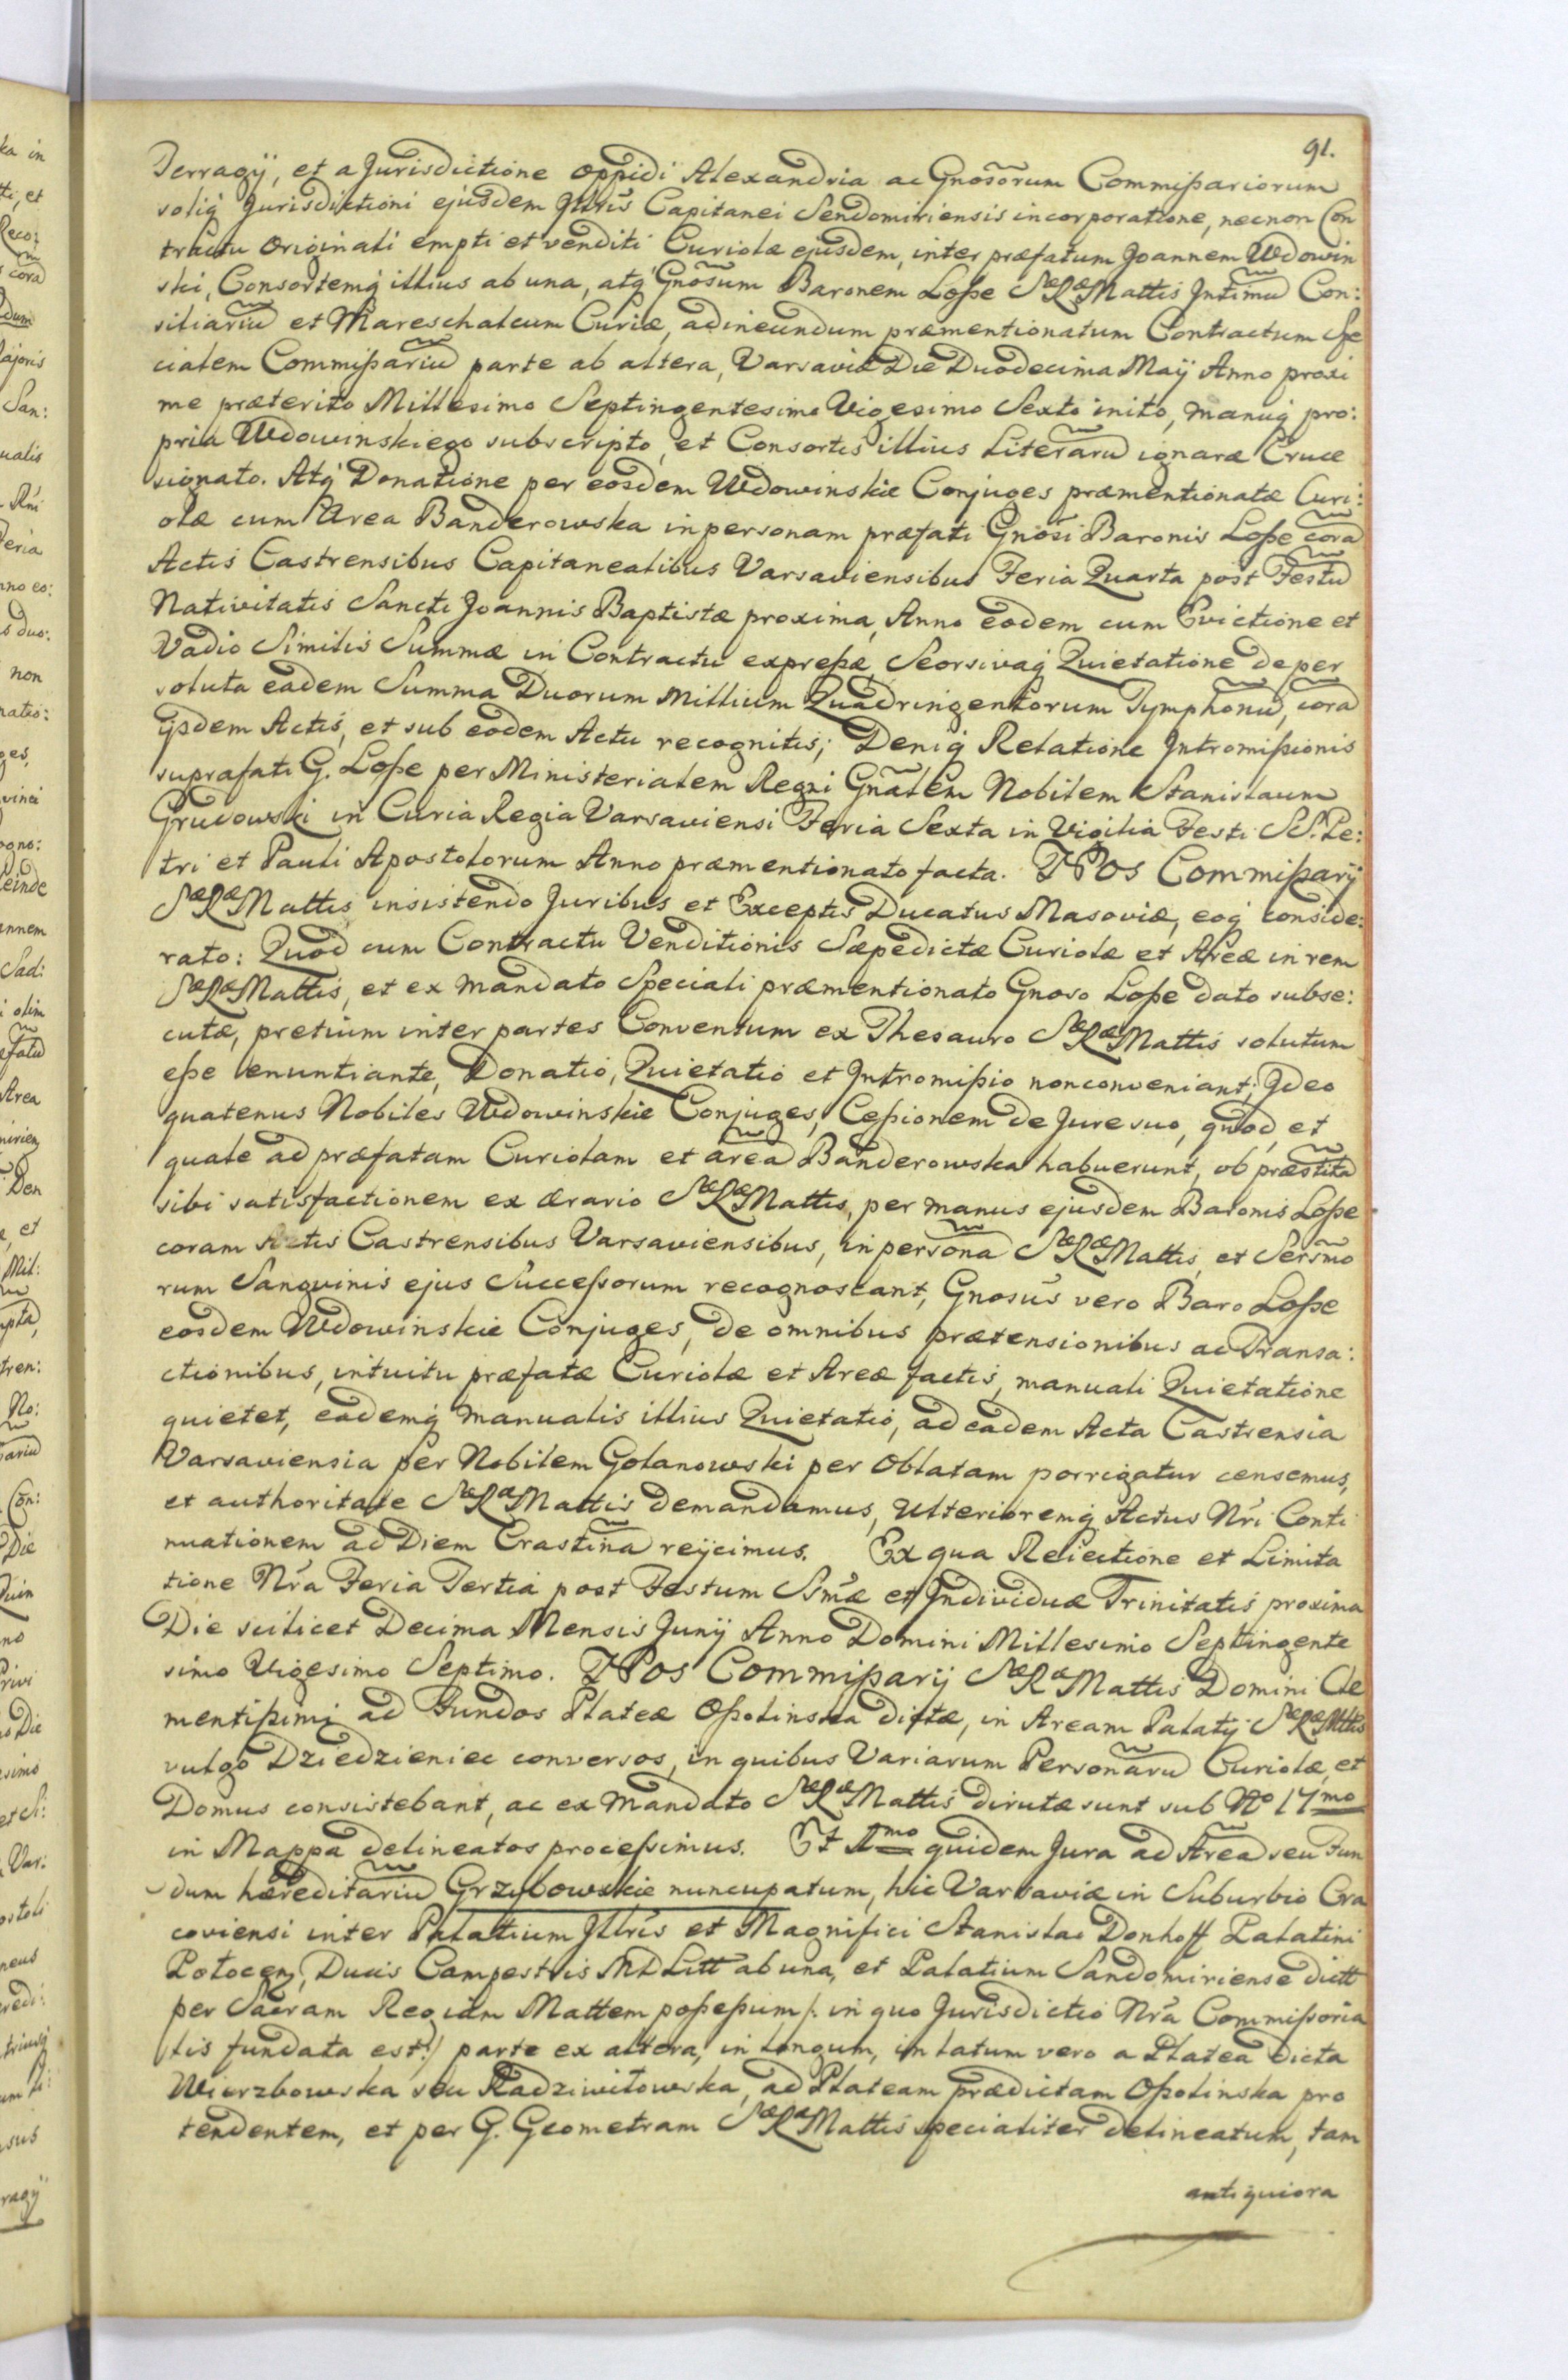 91.
Terragij, et a Jurisdictione oppidi Alexandria ac Gnosorum Commißariorum
soliq́ Jurisdictioni ejusdem Jllris Capitanei Sendomiriensis incorporatione, necnon Con
tractu originali empti et venditi Curiolæ ejusdem, inter præfatum Joannem Wdowin
ski, Consortemq́ illius ab una, atq́ Gnosum Baronem Loße SæRæMattis Jntimũ Con:
siliariũ et Mareschalcum Curiæ, ad ineundum præmentionatum Contractum Spe
cialem Commißariũ parte ab altera, Varsaviæ Die Duodecima Maÿ Anno proxi
me præterito Millesimo Septingentesimo Vigesimo Sexto inito, manuq́ pro:
pria Wdowinskiego subscripto, et Consortis illius Literarũ ignaræ Cruce
signato. Atq́ Donatione per eosdem Wdowinskie Conjuges præmentionatæ Curi:
olæ cum Area Banderowska in personam præfati Gnosi Baronis Loße corã
Actis Castrensibus Capitanealibus Varsaviensibus Feria Quarta post Festũ
Nativitatis Sancti Joannis Baptistæ proxima, Anno eodem cum Evictione et
Vadio Similis Summæ in Contractu expreßæ, Seorsivaq́ Quietatione de per
soluta eadem Summa Duorum Millium Quadringentorum Tymphonũ, corã
ijsdem Actis, et sub eodem Actu recognitis; Deniq́ Relatione Jntromißionis
suprafati G. Loße per Ministerialem Regni Gnalem Nobilem Stanislaum
Grudowski in Curia Regia Varsaviensi Feria Sexta in Vigilia Festi SS. Pe:
tri et Pauli Apostolorum Anno præmentionato facta. NOS Commißarij
SæRæMattis insistendo Juribus et Exceptis Ducatus Masoviæ, eoq́ conside:
rato: Quod cum Contractu Venditionis Sæpedictæ Curiolæ et Areæ in rem
SæRæMattis, et ex mandato Speciali præmentionato Gnoso Loße dato subse:
cutæ, pretium inter partes Conventum ex Thesauro SæRæMattis solutum
eße enuntiante, Donatio, Quietatio et Jntromißio non conveniant; Jdeo
quatenus Nobiles Wdowinskie Conjuges, Ceßionem de Jure suo, quod, et
quale ad præfatam Curiolam et areã Banderowska habuerunt, ob præstitã
sibi satisfactionem ex ærario SæRæMattis, per manus ejusdem Baronis Loße
coram Actis Castrensibus Varsaviensibus, in personã SæRæMattis, et Sersmo
rum Sanguinis ejus Succeßorum recognoscant, Gnosus vero Baro Loße
eosdem Wdowinskie Conjuges, de omnibus prætensionibus ac Transa:
ctionibus, intuitu præfatæ Curiolæ et Areæ factis, manuali Quietatione
quietet, eademq́ manualis illius Quietatio, ad eadem Acta Castrensia
Varsaviensia per Nobilem Golanowski per Oblatam porrigatur censemus,
et authoritate SæRæMattis demandamus, Ulterioremq́ Actus Nri Conti
nuationem ad Diem Crastinã reijcimus. Ex qua Reiectione et Limita
tione Nra Feria Tertia post Festum Ssmæ et Jndividuæ Trinitatis proxima
Die scilicet Decima Mensis Junij Anno Domini Millesimo Septingente
simo Vigesimo Septimo. NOS Commißarij SæRæMattis Domini Cle
mentißimi ad Fundos Plateæ Oßolinska dictæ, in Aream Palatij SæRæMttis
vulgo Dziedzieniec conversos, in quibus Variarum Personarũ Curiolæ, et
Domus consistebant, ac ex Mandato SæRæMattis dirutæ sunt sub No 17mo
in Mappa delineatos proceßimus. Et 1mo quidem Jura ad Areã seu Fun
dum hæreditariũ Grzybowskie nuncupatum, hic Varsaviæ in Suburbio Cra
coviensi inter Palatium Jllris et Magnifici Stanislai Donhoff Palatini
Polocen, Ducis Campestris MDLitt ab una, et Palatium Sandomiriense dictt
per Sacram Regiam Mattem poßeßum /: in quo Jurisdictio Nra Commißoria
lis fundata est :/ parte ex altera, in longum, in latum vero a Platea dicta
Wierzbowska seu Radziwiłowska, ad Plateam prædictam Oßolinska pro
tendentem, et per G. Geometram SæRæMattis specialiter delineatum, tam
antiquiora